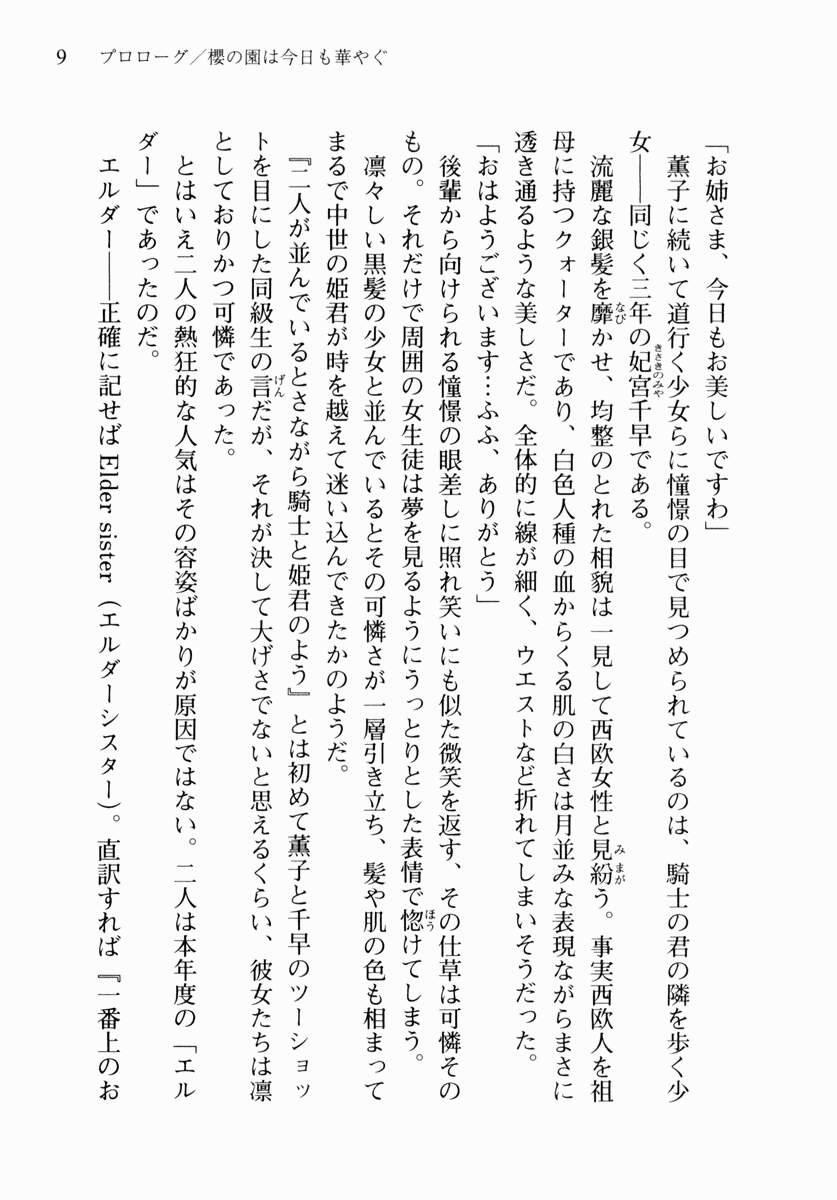 9 プロローグ／櫻の園は今日も華やぐ
「お姉さま、今日もお美しいですわ」
　薫子に続いて道行く少女らに憧憬の目で見つめられているのは、騎士の君の隣を歩く少
女――同じく三年の妃宮千早である。
きさきのみや
　流麗な銀髪を靡かせ、均整のとれた相貌は一見して西欧女性と見紛う。事実西欧人を祖
なび
みまが
母に持つクォーターであり、白色人種の血からくる肌の白さは月並みな表現ながらまさに
透き通るような美しさだ。全体的に線が細く、ウエストなど折れてしまいそうだった。
「おはようございます…ふふ、ありがとう」
　後輩から向けられる憧憬の眼差しに照れ笑いにも似た微笑を返す、その仕草は可憐その
もの。それだけで周囲の女生徒は夢を見るようにうっとりとした表情で惚けてしまう。
ほう
　凛々しい黒髪の少女と並んでいるとその可憐さが一層引き立ち、髪や肌の色も相まって
まるで中世の姫君が時を越えて迷い込んできたかのようだ。
『二人が並んでいるとさながら騎士と姫君のよう』とは初めて薫子と千早のツーショッ
トを目にした同級生の言だが、それが決して大げさでないと思えるくらい、彼女たちは凛
げん
としておりかつ可憐であった。
　とはいえ二人の熱狂的な人気はその容姿ばかりが原因ではない。二人は本年度の「エル
ダー」であったのだ。
　エルダー――正確に記せば Elder sister（エルダーシスター）。直訳すれば『一番上のお